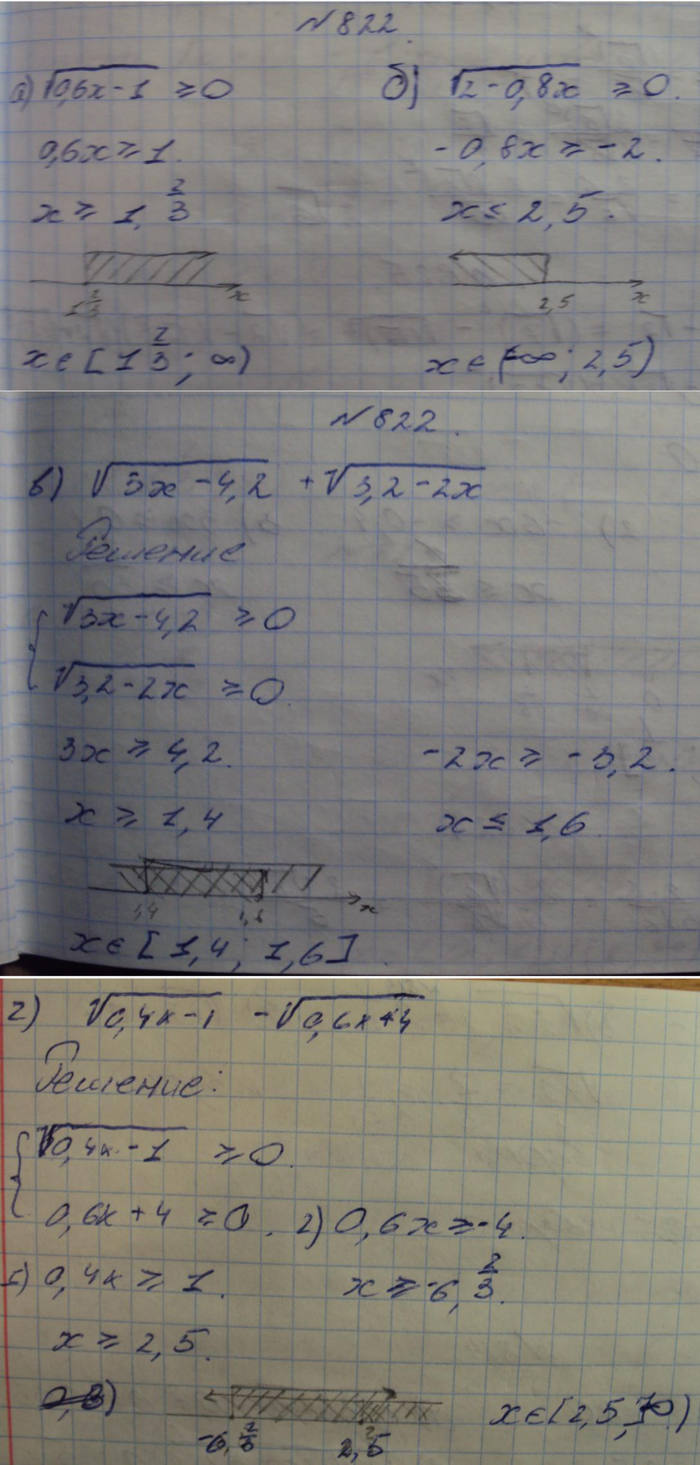 №822.
а) √0,6x-1 ≥ 0 б) √2-0,8x ≥ 0.
0,6x ≥ 1. -0,8x ≥ -2.
x ≥ 1, 2/3 x ≤ 2,5.
1 2/3 x 2,5 x
x ∈ [1 2/3; ∞) x ∈ (-∞; 2,5)
№822.
в) √3x-4,2 + √3,2-2x
Решение
{ √3x-4,2 ≥ 0
√3,2-2x ≥ 0.
3x ≥ 4,2. -2x ≥ -3,2.
x ≥ 1,4 x ≤ 1,6
1,4 1,6 x
x ∈ [1,4; 1,6].
г) √0,4x-1 - √0,6x+4
Решение:
{ √0,4x-1 ≥ 0.
0,6x+4 ≥ 0. 2) 0,6x ≥ -4.
1) 0,4x ≥ 1. x ≥ -6, 2/3.
x ≥ 2,5.
-6, 2/3 2,5
x ∈ [2,5,